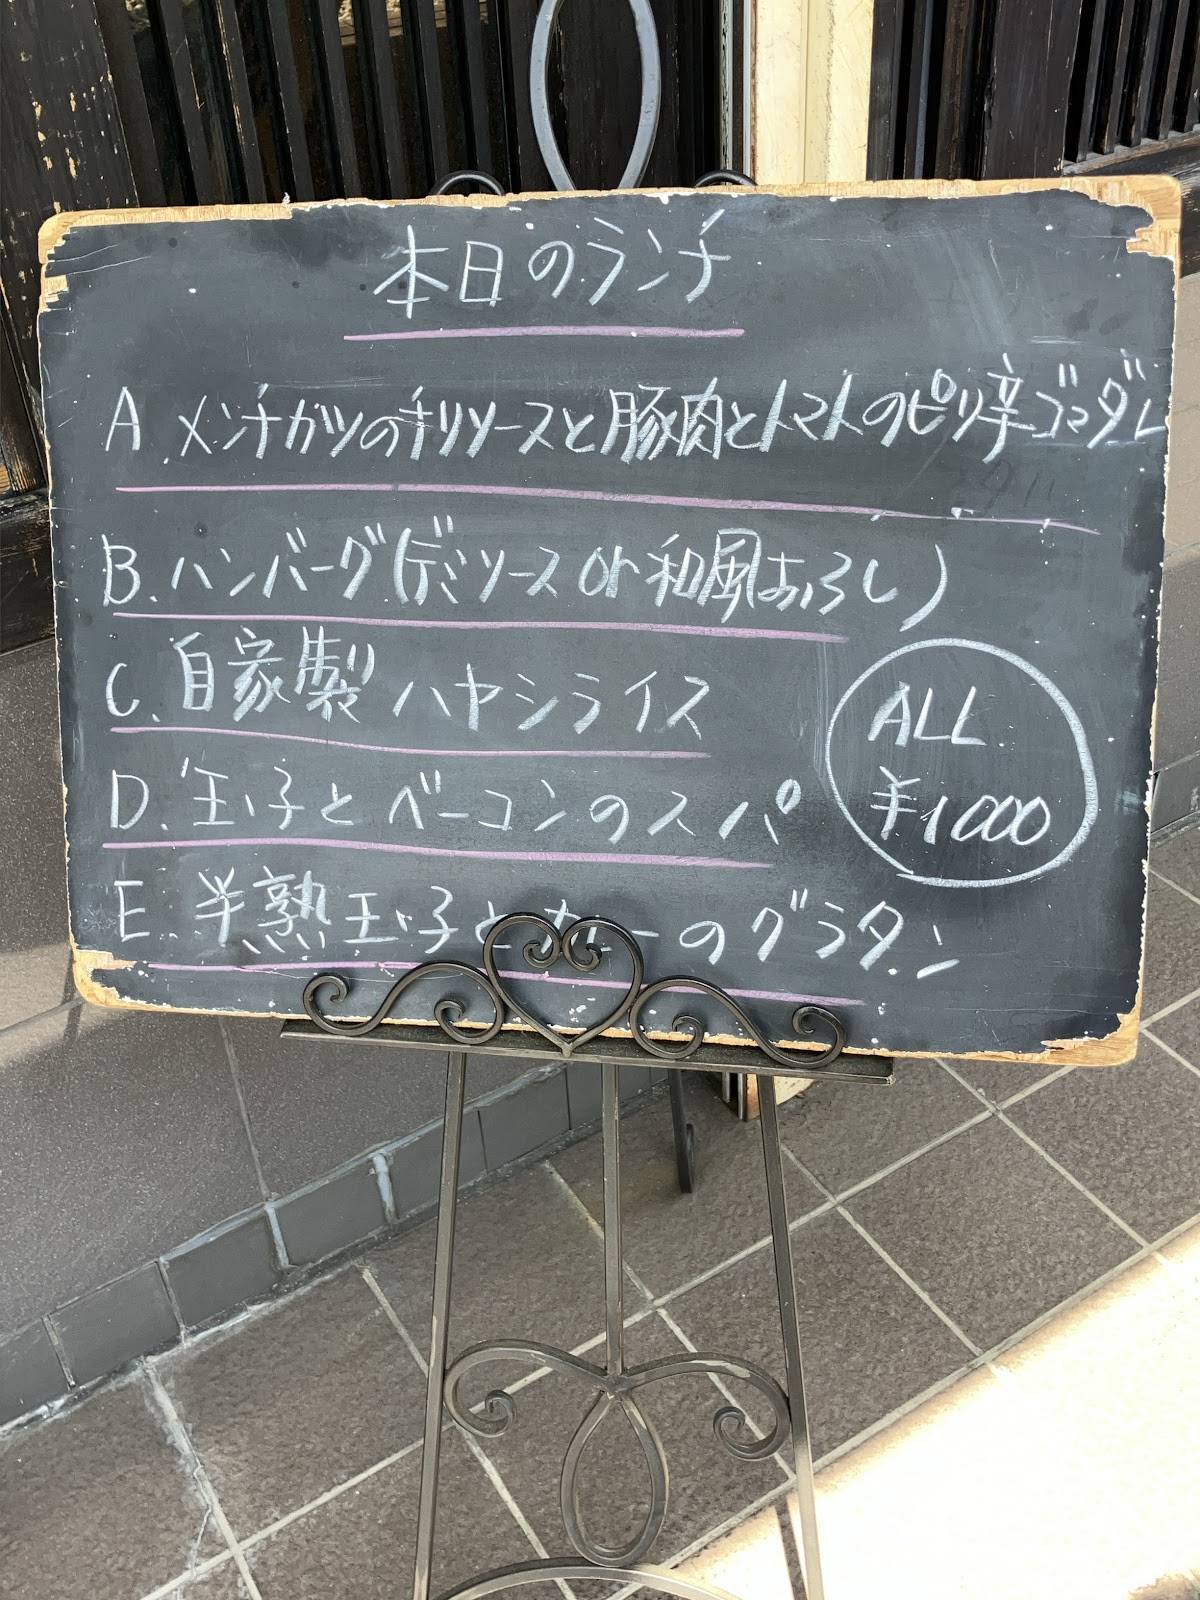 本日のランチ
A.メンチカツのチリソースと豚肉とトマトのピリ辛ゴマダレ
B.ハンバーグ(デミソース or 和風おろし)
C.自家製ハヤシライス
D.玉子とベーコンのスパ
E.半熟玉子とカレーのグラタン
ALL
¥1000